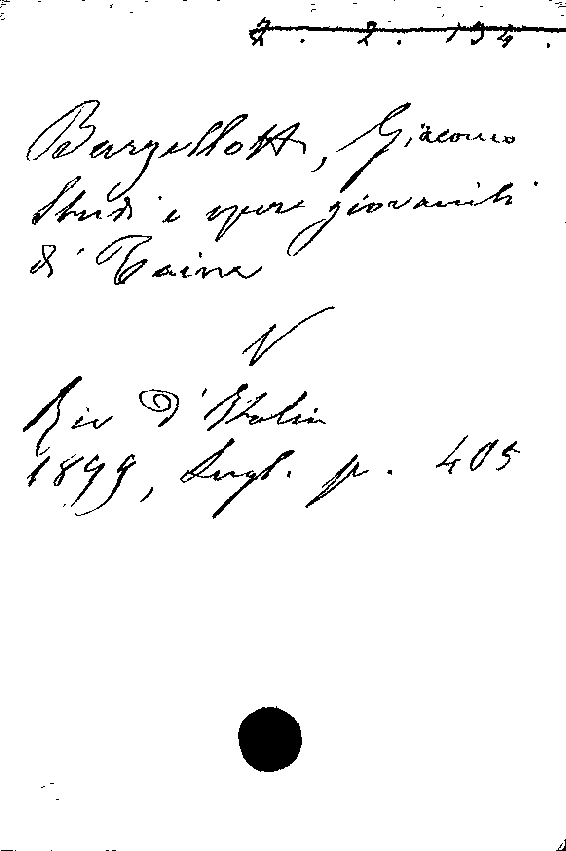 2. 2. 134.
Bargellotti, Giacomo
Studi e opere giovanili
di Taine
V
Riv d'Italia
1899, Lugl. p. 405